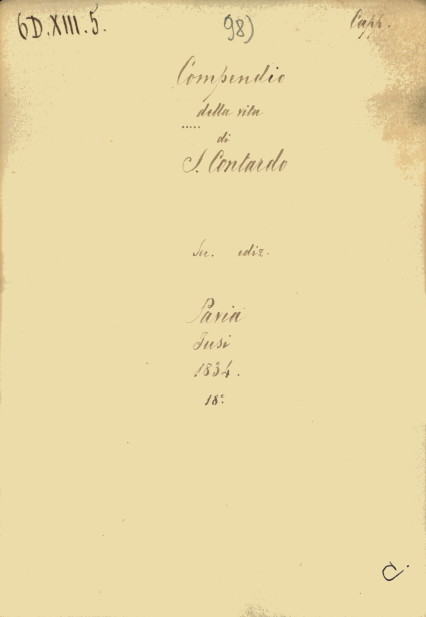 6D.XIII.5.
98)
Capp.
Compendio
della vita
.....
di
S. Contardo
Sec. ediz.
Pavia
Fusi
1834.
18°
C.